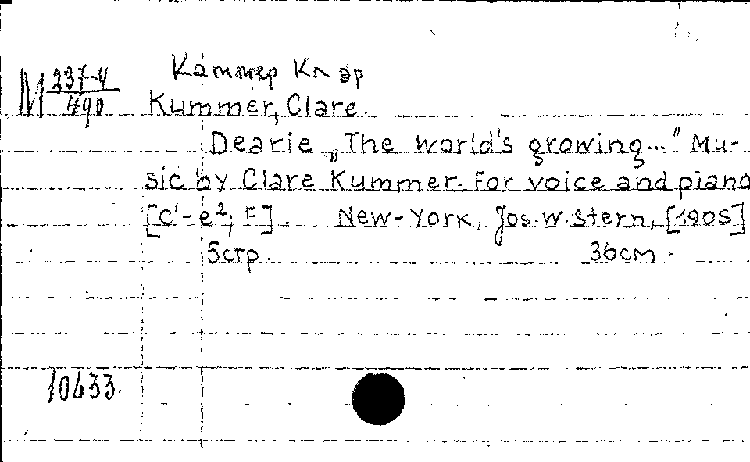 Каммер Клэр
М 237-4/490
Kummer, Clare.
Dearie „The world's growing..." Mu-
sic by Clare Kummer. For voice and piano
[c¹-e²; F]. New-York, Jos. W. Stern, [1905]
5стр. 36см.
10633